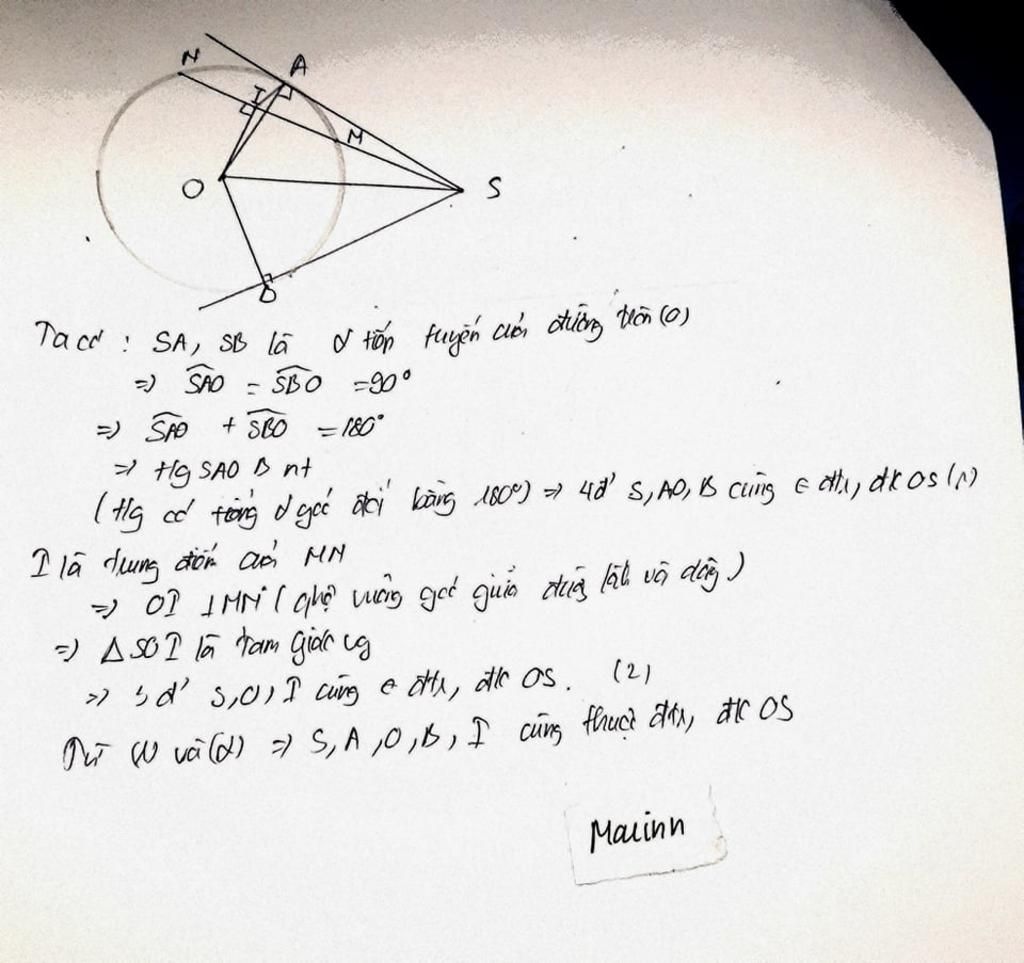 N
A
I
M
O
S
B
Ta có : SA, SB là 2 tiếp tuyến của đường tròn (O)
=> SAO = SBO = 90°
=> SAO + SBO = 180°
=> tfg SAO B nt
(tfg có tổng 2 góc đối bằng 180°) => 4đ' S, A,O, B cùng ∈ đtr, đk OS (1)
I là trung điểm của MN
=> OI ⊥ MN ( qhệ vuông góc giữa và dây )
=> Δ SOI là tam giác vg
=> 3 đ' S, O, I cùng ∈ đtr, đk OS. (2)
Từ (1) và (2) => S, A, O, B, I cùng thuộc đtr, đk OS
Maiinn